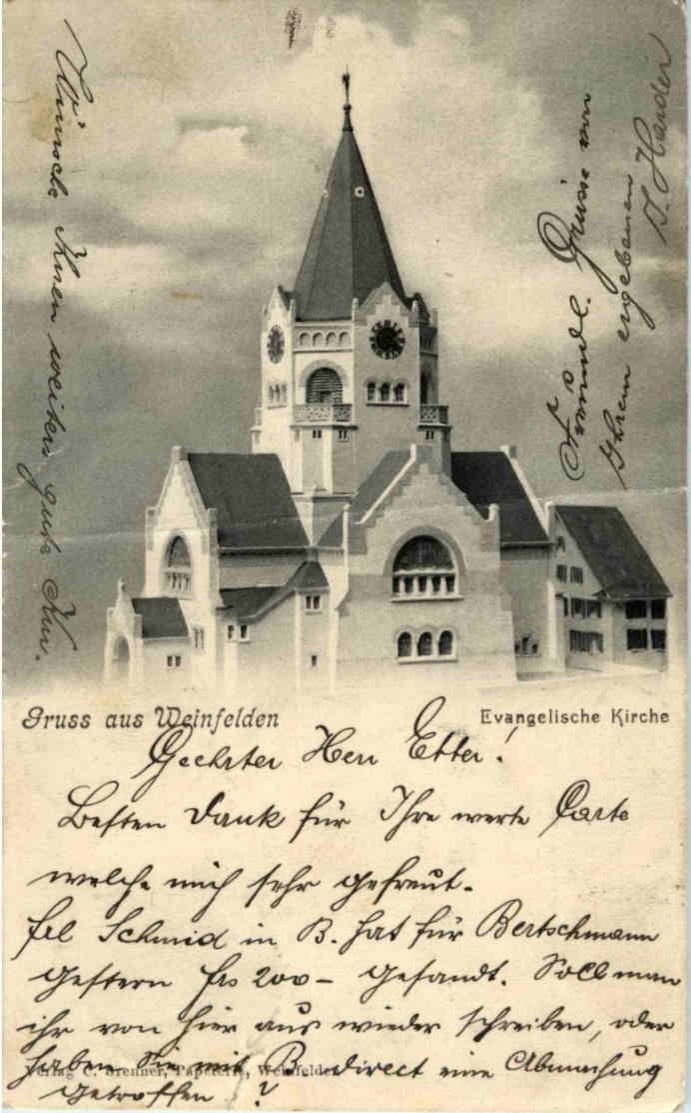 Gruss aus Weinfelden
Evangelische Kirche
Geehrter Herr Etter!
Besten Dank für Ihre werte Carte
welche mich sehr gefreut.
Frl Schmid in B. hat für Bertschmann
gestern frs 200 – gesandt. Soll man
ihr von hier aus wieder schreiben, oder
haben Sie mit B direct eine Abmachung
getroffen ?
Verlag C. Brenner, Papeterie, Weinfelden
Wünsche Ihnen weiters gute Kur.
Freundl. Grüsse von
Ihrem ergebenen